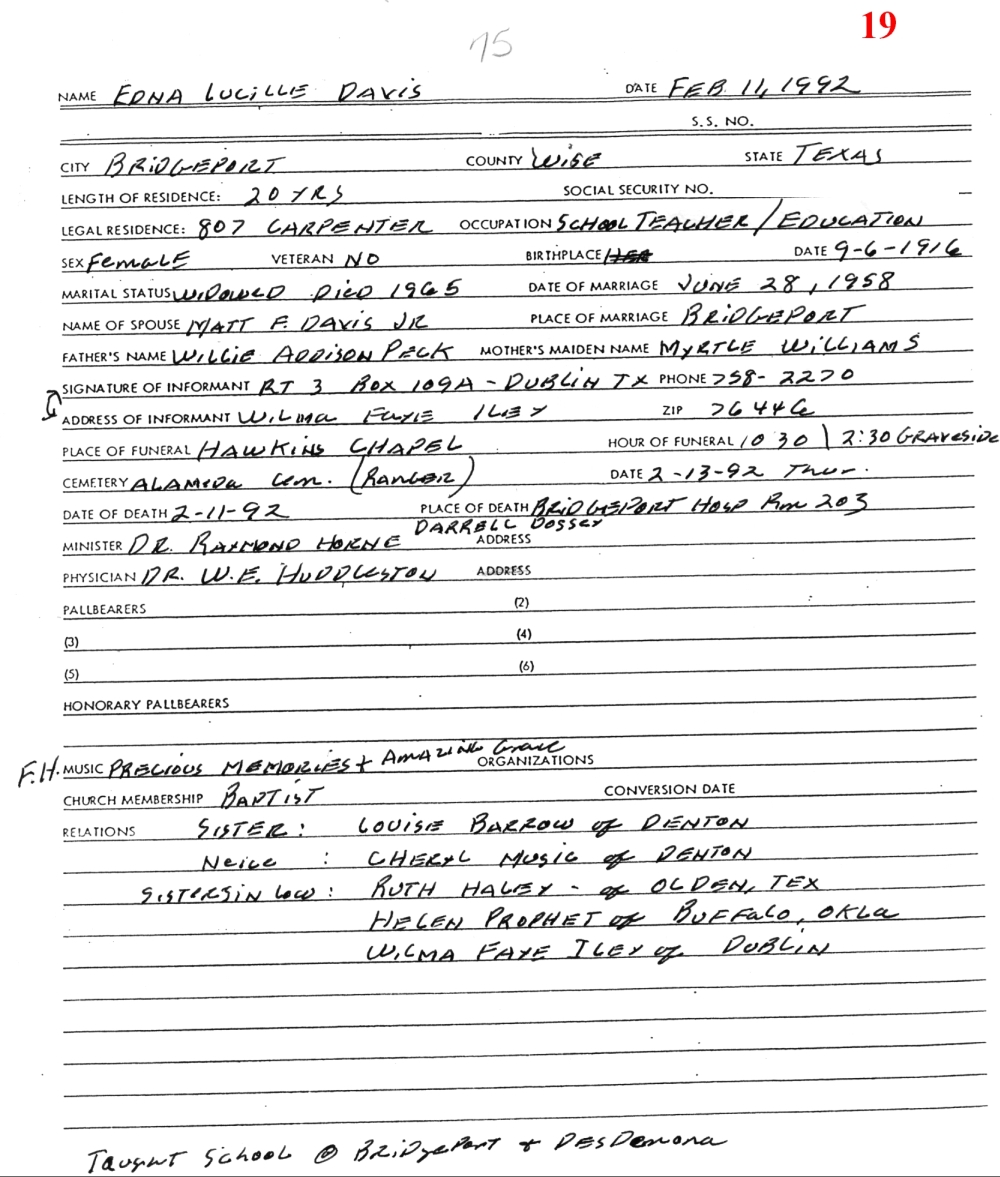 19
75
NAME EDNA LUCILLE DAVIS DATE FEB 11, 1992
S.S. NO.
CITY BRIDGEPORT COUNTY WISE STATE TEXAS
LENGTH OF RESIDENCE: 20 YRS SOCIAL SECURITY NO.
LEGAL RESIDENCE: 807 CARPENTER OCCUPATION SCHOOL TEACHER / EDUCATION
SEX FEMALE VETERAN NO BIRTHPLACE DATE 9-6-1916
MARITAL STATUS WIDOWED DIED 1965 DATE OF MARRIAGE JUNE 28, 1958
NAME OF SPOUSE MATT F. DAVIS JR PLACE OF MARRIAGE BRIDGEPORT
FATHER'S NAME WILLIE ADDISON PECK MOTHER'S MAIDEN NAME MYRTLE WILLIAMS
SIGNATURE OF INFORMANT RT 3 BOX 109A - DUBLIN TX PHONE 758-2270
ADDRESS OF INFORMANT WILMA FAYE ILEY ZIP 76446
PLACE OF FUNERAL HAWKINS CHAPEL HOUR OF FUNERAL 10 30 | 2:30 GRAVESIDE
CEMETERY ALAMEDA Cem. (RANGER) DATE 2-13-92 Thur.
DATE OF DEATH 2-11-92 PLACE OF DEATH BRIDGEPORT HOSP Rm 203
DARRELL DOSSEY
MINISTER DR. RAYMOND HORNE ADDRESS
PHYSICIAN DR. W.E. HUDDLESTON ADDRESS
PALLBEARERS (2)
(3) (4)
(5) (6)
HONORARY PALLBEARERS
F.H. MUSIC PRECIOUS MEMORIES + AMAZING Grace ORGANIZATIONS
CHURCH MEMBERSHIP BAPTIST CONVERSION DATE
RELATIONS SISTER: LOUISE BARROW of DENTON
Neice : CHERYL MUSIC of DENTON
SISTERSIN LAW: RUTH HALEY - of OLDEN, TEX
HELEN PROPHET of BUFFALO, OKLA
WILMA FAYE ILEY of DUBLIN
Taught School @ BRIDgePORT + DESDemona